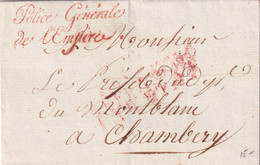 Police Générale
de l'Empire
A Monsieur
Le Préfet du dépt.
du Montblanc
a Chambery